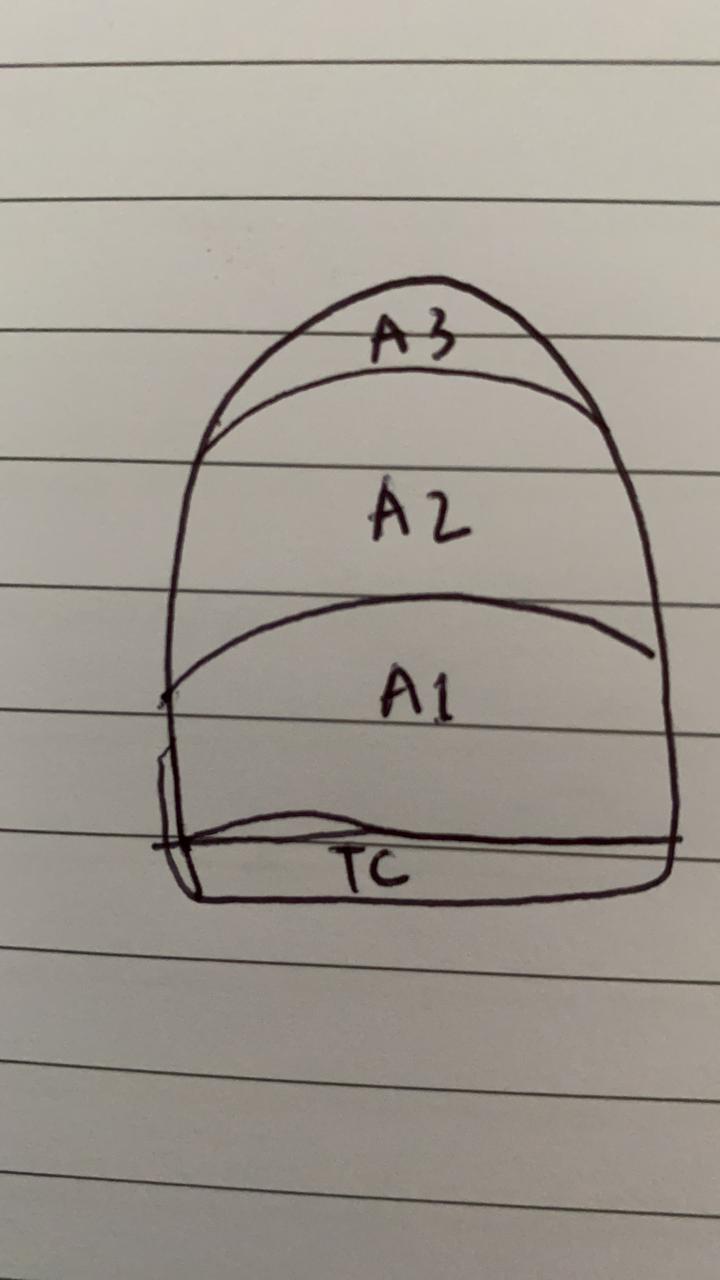 A3
A2
A1
TC